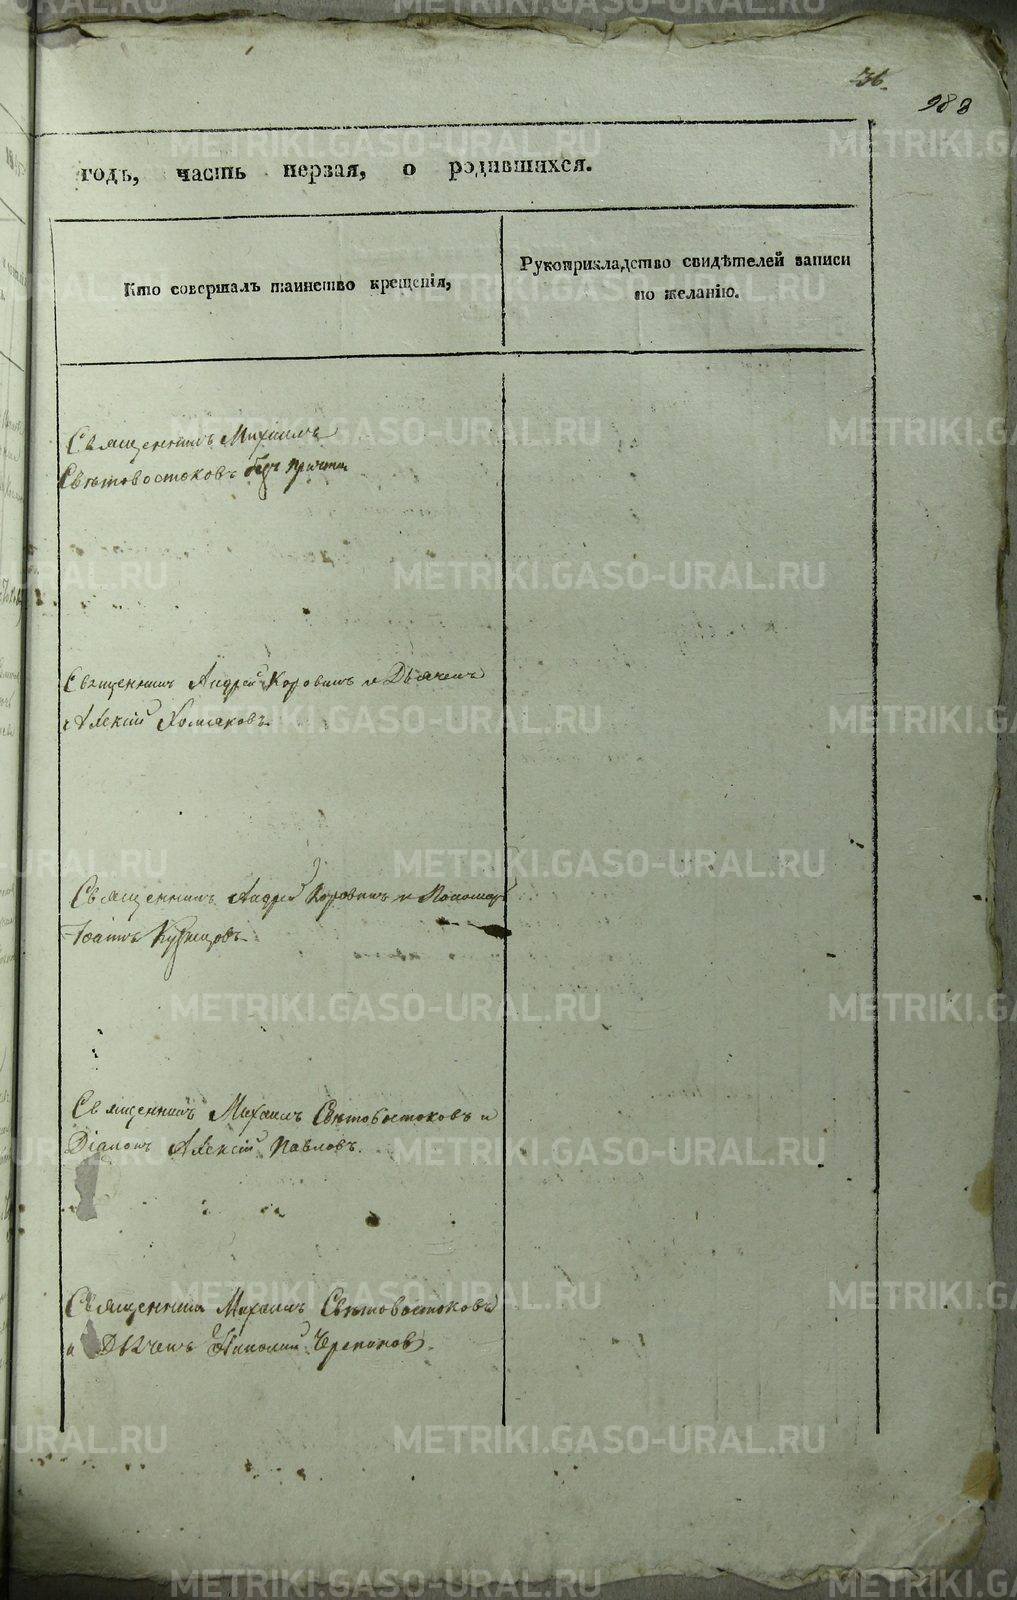 36.
988
годъ, часть первая, о родившихся.
Кто совершалъ таинство крещенія,
Рукоприкладство свидѣтелей записи
по желанію.
Священникъ Михаилъ
Свѣтовостоковъ безъ причта
Священникъ Андрей Коровинъ и Дьячекъ
Алексій Холмаковъ.
Священникъ Андрей Коровинъ и Пономарь
Іоаннъ Кузнецовъ.
Священникъ Михаилъ Свѣтовостоковъ и
Діаконъ Алексій Павловъ.
Священникъ Михаилъ Свѣтовостоковъ
и Дьячекъ Николай Черепановъ.
METRIKI.GASO-URAL.RU